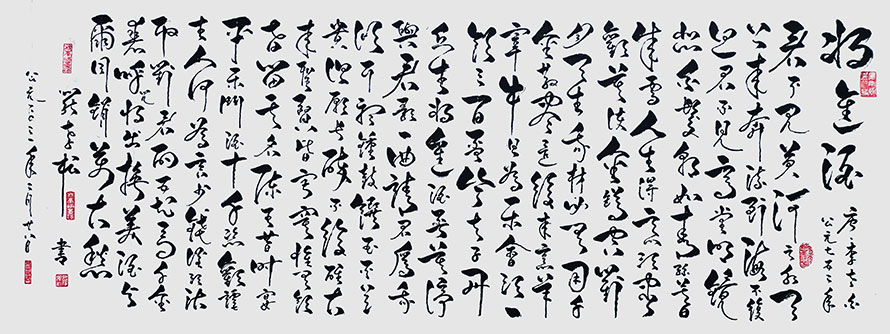 将進酒
唐李太白
公元七五二年
君不見黄河之水天
上来奔流到海不復
回君不見高堂明鏡
悲白髮朝如青絲暮
成雪人生得意須盡
歡莫使金樽空對
月天生我材必有用千
金散盡還復来烹羊
宰牛且為樂會須一
飲三百盃岑夫子丹
丘生将進酒君莫停
與君歌一曲請君為我
傾耳聽鐘鼓饌玉不足
貴但願長醉不復醒古
来聖賢皆寂寞惟有飲
者留其名陳王昔时宴
平樂鬥酒十千恣歡謔
主人何為言少錢徑須沽
取對君酌五花馬千金
裘呼兒将出換美酒与
爾同銷萬古愁
松 書
公元二〇 年二月廿